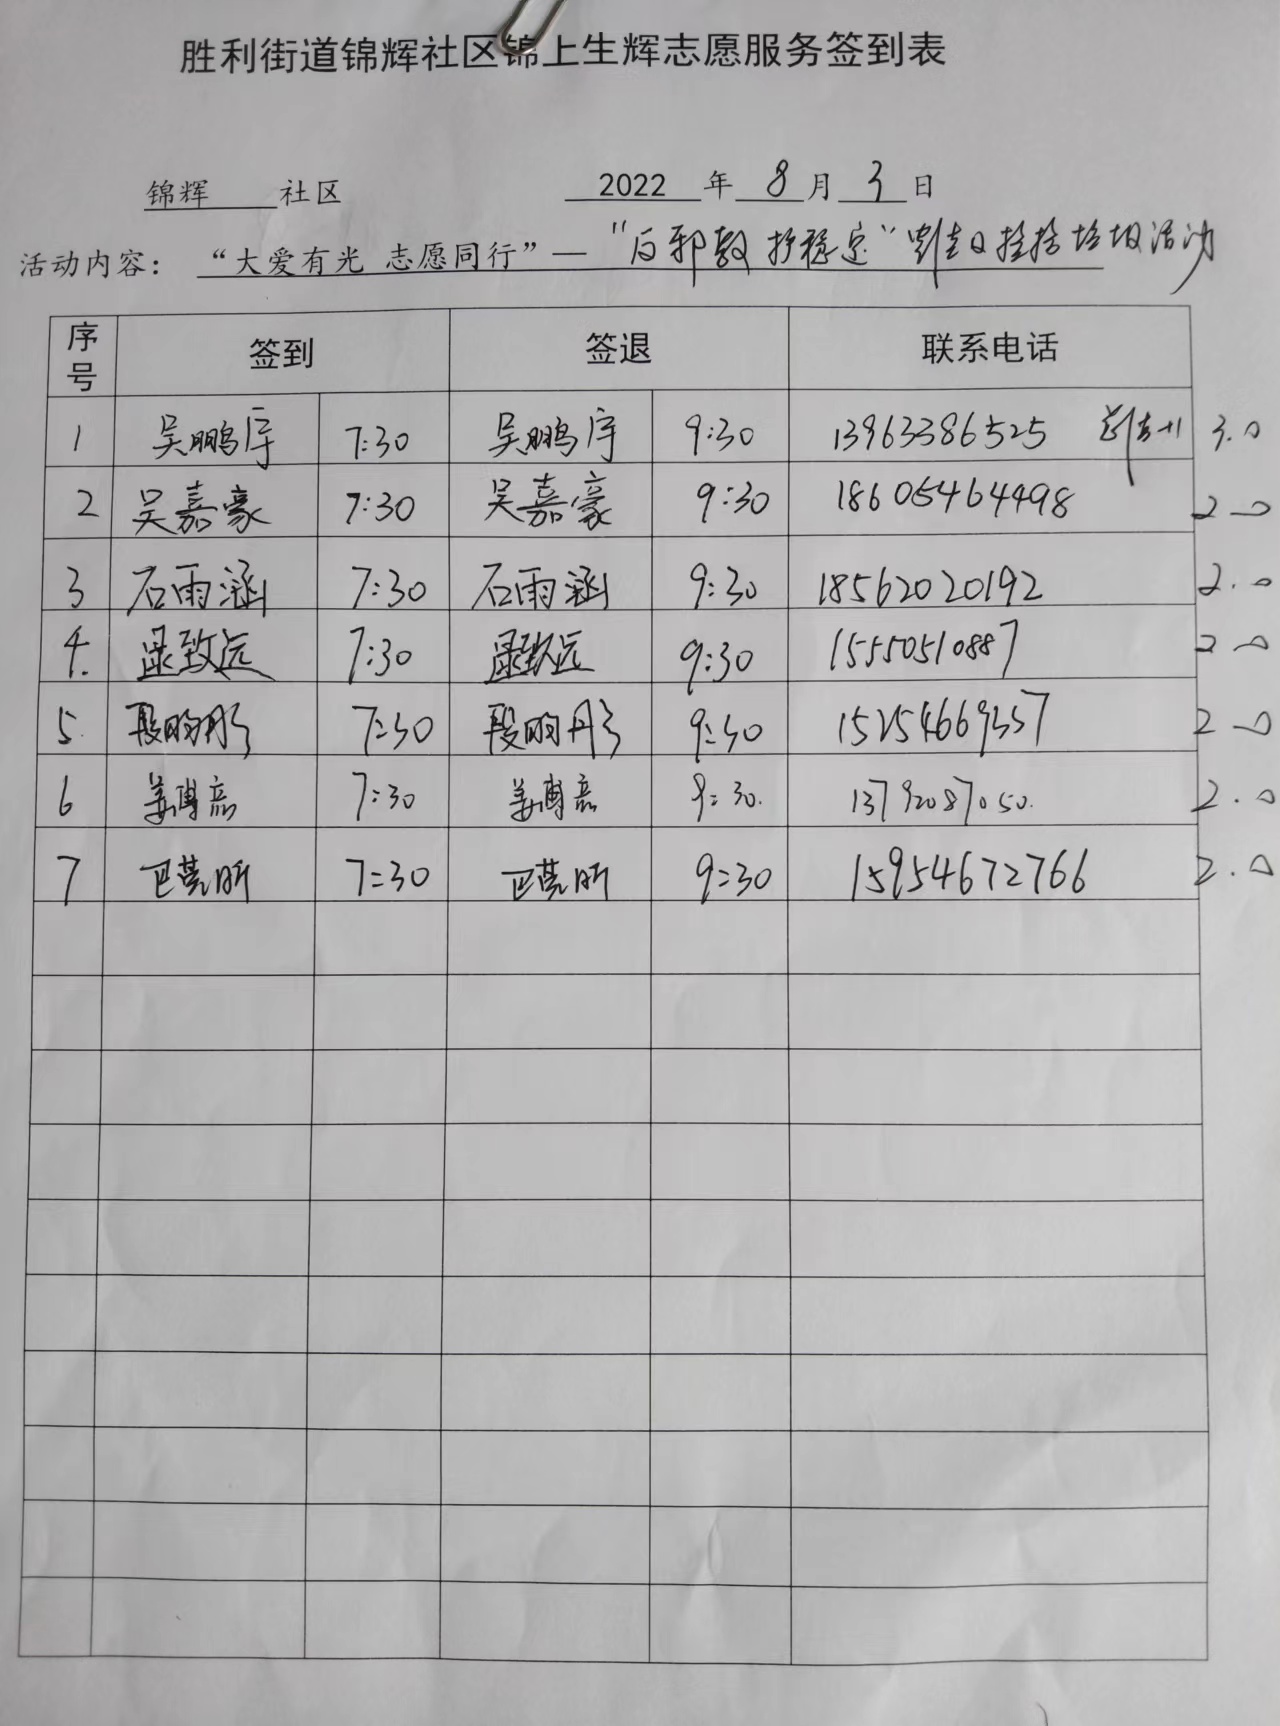 胜利街道锦辉社区锦上生辉志愿服务签到表
锦辉 社区 2022 年 8 月 3 日
活动内容： “大爱有光 志愿同行”— “反邪教 护稳定” 捡拾垃圾活动
序号 签到 签退 联系电话
1 吴鹏宇 7:30 吴鹏宇 9:30 13963386525 3.0
2 吴嘉豪 7:30 吴嘉豪 9:30 18605464498 2.0
3 石雨涵 7:30 石雨涵 9:30 18562020192 2.0
4. 逯致远 7:30 逯致远 9:30 15550510887 2.0
5. 段昀彤 7:30 段昀彤 9:30 15254669337 2.0
6 姜博 7:30 姜博 9:30. 13792087050. 2.0
7 7:30 9:30 15954672766 2.0